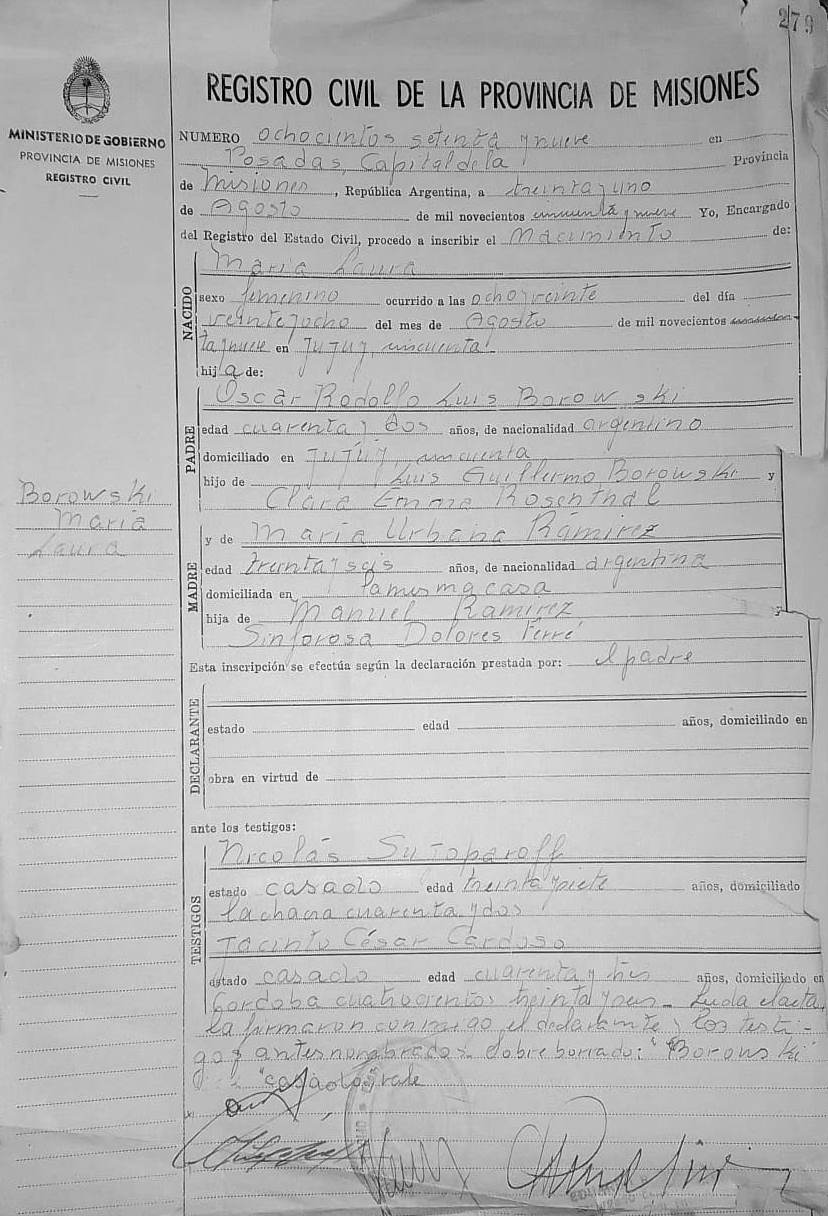 279
REGISTRO CIVIL DE LA PROVINCIA DE MISIONES
MINISTERIO DE GOBIERNO
PROVINCIA DE MISIONES
REGISTRO CIVIL
NUMERO ochocientos setenta y nueve en
Posadas, Capital de la Provincia
de Misiones, República Argentina, a treinta y uno
de Agosto de mil novecientos cincuenta y nueve Yo, Encargado
del Registro del Estado Civil, procedo a inscribir el Nacimiento de:
NACIDO
Maria Laura
sexo femenino ocurrido a las ocho y veinte del día
veinte y ocho del mes de Agosto de mil novecientos cincuen
ta y nueve en Jujuy, cincuenta
hija de:
PADRE
Oscar Rodolfo Luis Borowski
edad cuarenta y dos años, de nacionalidad argentino
domiciliado en Jujuy, cincuenta
hijo de Luis Guillermo Borowski y
Clara Emma Rosenthal
Borowski
Maria
Laura
MADRE
y de Maria Urbana Ramirez
edad treinta y seis años, de nacionalidad argentina
domiciliada en la misma casa
hija de Manuel Ramirez y
Sinforosa Dolores Ferré
Esta inscripción se efectúa según la declaración prestada por: el padre
DECLARANTE
estado edad años, domiciliado en
obra en virtud de
ante los testigos:
TESTIGOS
Nicolás
estado casado edad treinta y siete años, domiciliado
la chacra cuarenta y dos
Jacinto César Cardoso
estado casado edad cuarenta y tres años, domiciliado en
Cordoba cuatrocientos treinta y seis - Leida el acta,
la firmaron conmigo el declarante y los testi-
gos antes nombrados. Sobre borrado: "Borowski"
"casado" vale